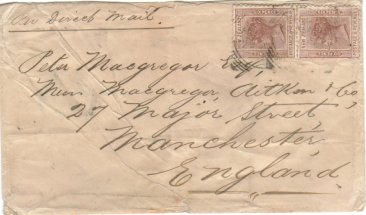 Per Direct Mail.
Peter Macgregor Esq,
Messrs Macgregor, Aitken & Co
27 Major Street,
Manchester,
England